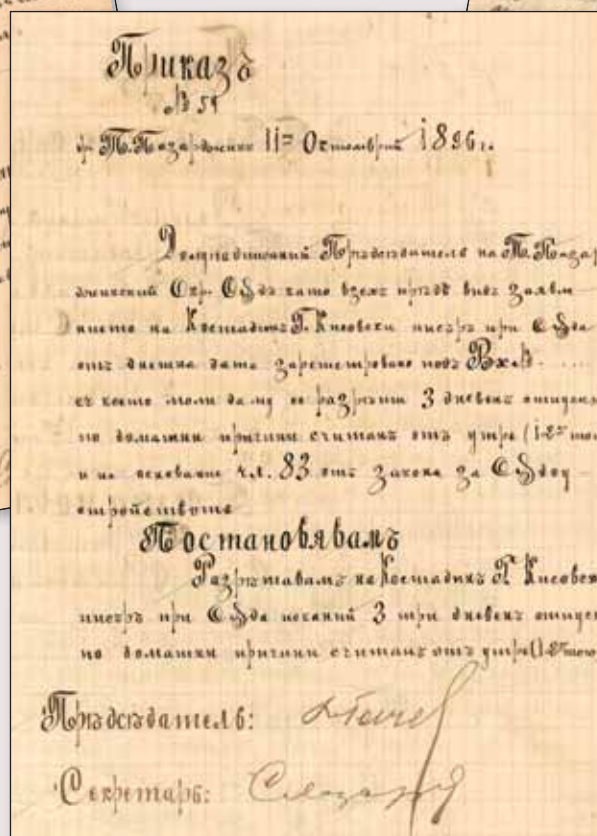 Приказъ
№ 59
гр. Т. Пазарджикъ 11-й Октомврий 1896 г.
Долуподписаний Прѣдсѣдатель на Т. Пазар
джикский Окр. Сѫдъ като взехъ прѣдъ видъ Заявл-
нието на Костадинъ Г. Кисовски писарь при Сѫда
отъ днешна дата зарегистровано подъ Вх. №.....
съ което моли да му се разрѣши 3 дневенъ отпускъ
по домашни причини считанъ отъ утрѣ (12й то
и на основание чл. 83 отъ Закона за Сѫдоу-
стройството
Постановявамъ
Разрѣшавамъ на Костадинъ Г. Кисовски
писарь при Сѫда исканий 3 три дневенъ отпускъ
по домашни причини считанъ отъ утрѣ (12й то
Прѣдсѣдатель:
Секретарь: